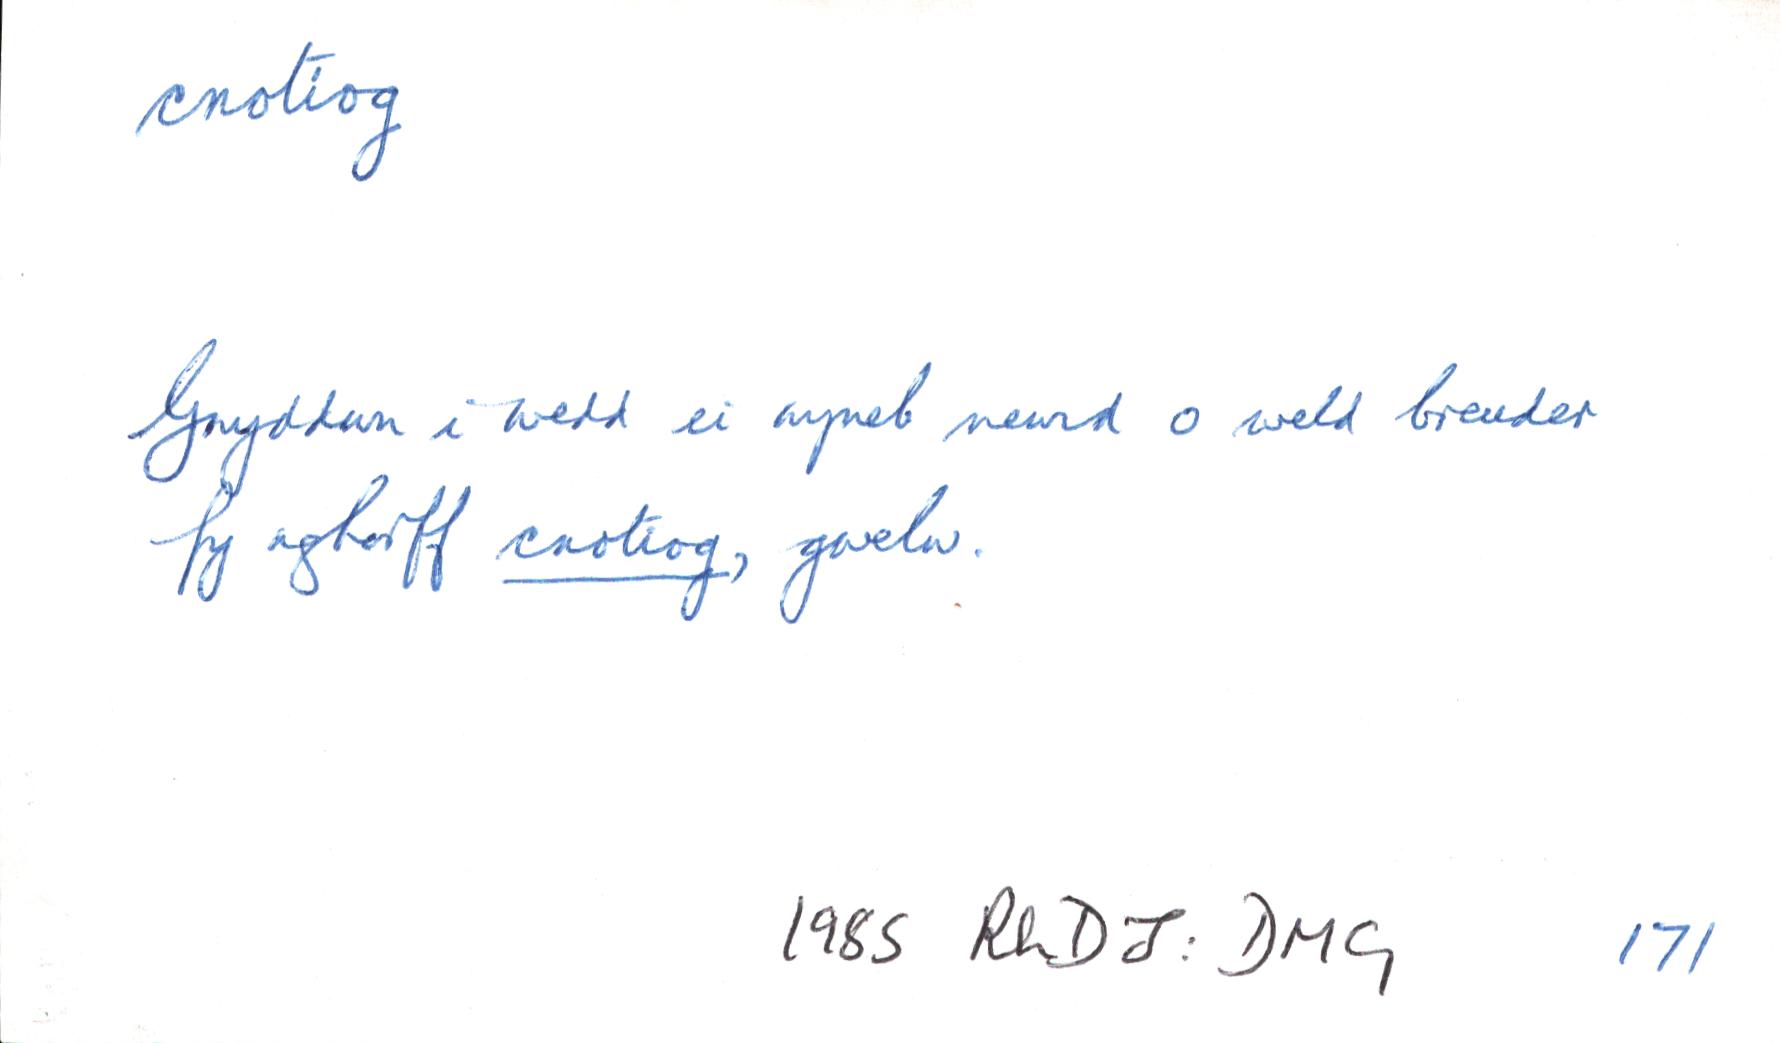 cnotiog
Gnyddwn i wedd ei wyneb newid o weld breuder
fy nghorff cnotiog, gwelw.
1985 RhDJ: DMG 171